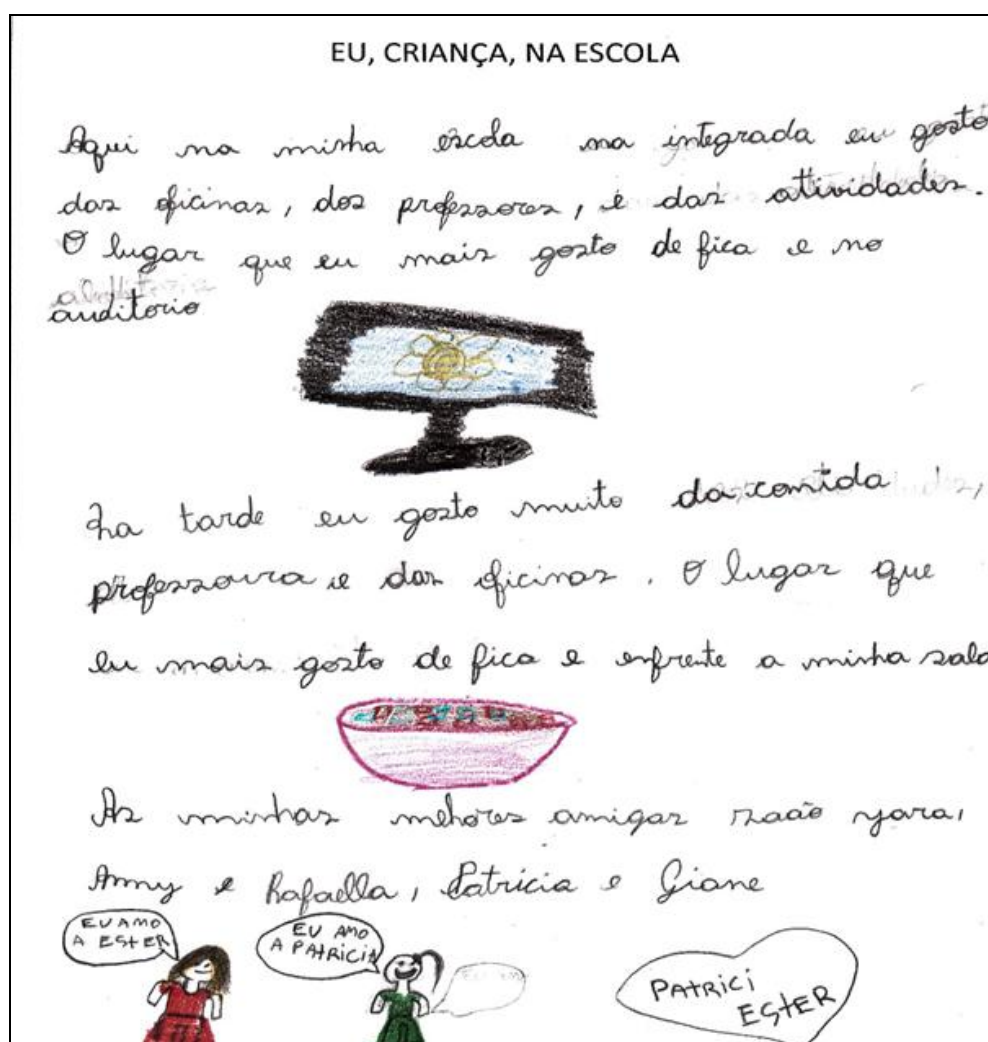 EU, CRIANÇA, NA ESCOLA
Aqui na minha escola na integrada eu gosto
das oficinas, dos professores, e das atividades.
O lugar que eu mais gosto de fica e no
auditorio
ha tarde eu gosto muito da comida,
professoura e das oficinas. O lugar que
eu mais gosto de fica e enfrente a minha sala
As minhas melhores amigas saão yara,
Anny e Rafaella, Patricia e Giane
EU AMO
A ESTER
EU AMO
A PATRICIA
PATRICI
ESTER